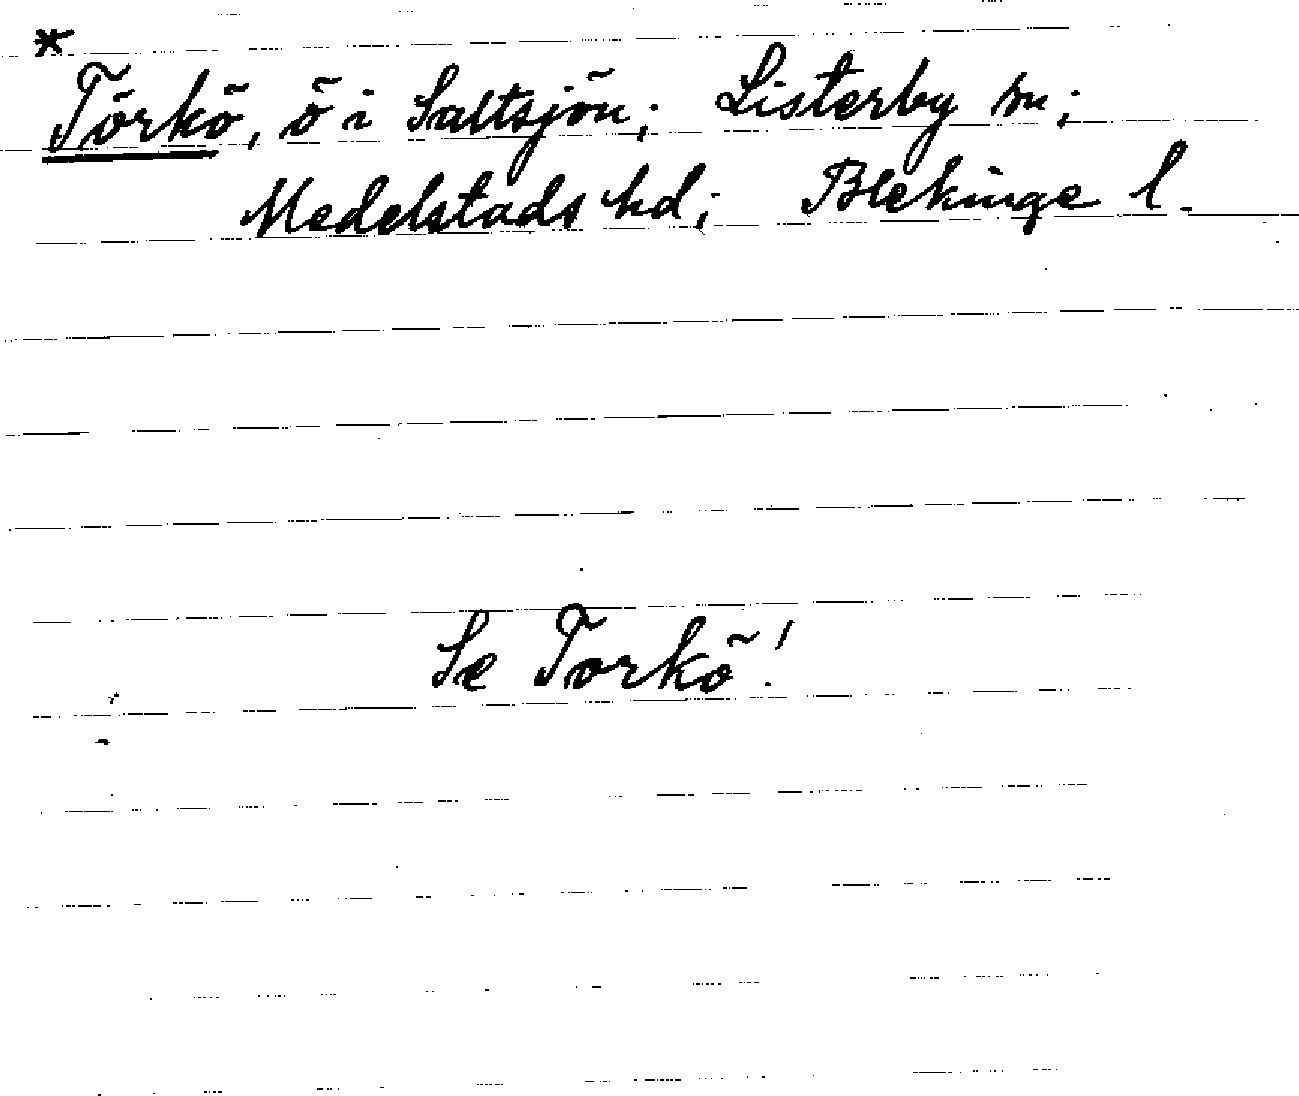 *
Törkö, ö i Saltsjön; Listerby sn;
Medelstads hd; Blekinge l.
Se Torkö!